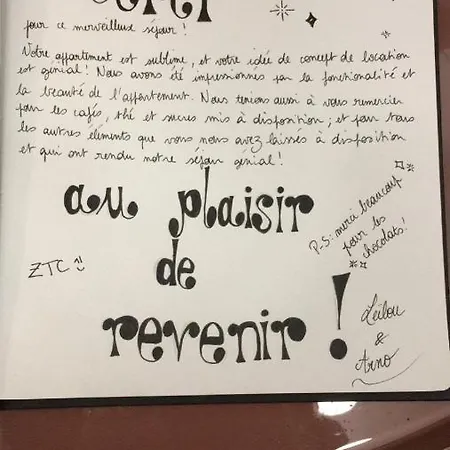 pour ce merveilleux séjour!
Votre appartement est sublime, et votre idée de concept de location
est génial! Nous avons été impressionnés par la fonctionalité et
la beauté de l'appartement. Nous tenions aussi à vous remercier
pour les cafés, thé et sucres mis à disposition; et pour tous
les autres éléments que vous nous avez laissés à disposition
et qui ont rendu notre séjour génial!
au plaisir
de
revenir!
P-S: merci beaucoup
pour les
chocolats!
ZTC
Leïlou
&
Arno